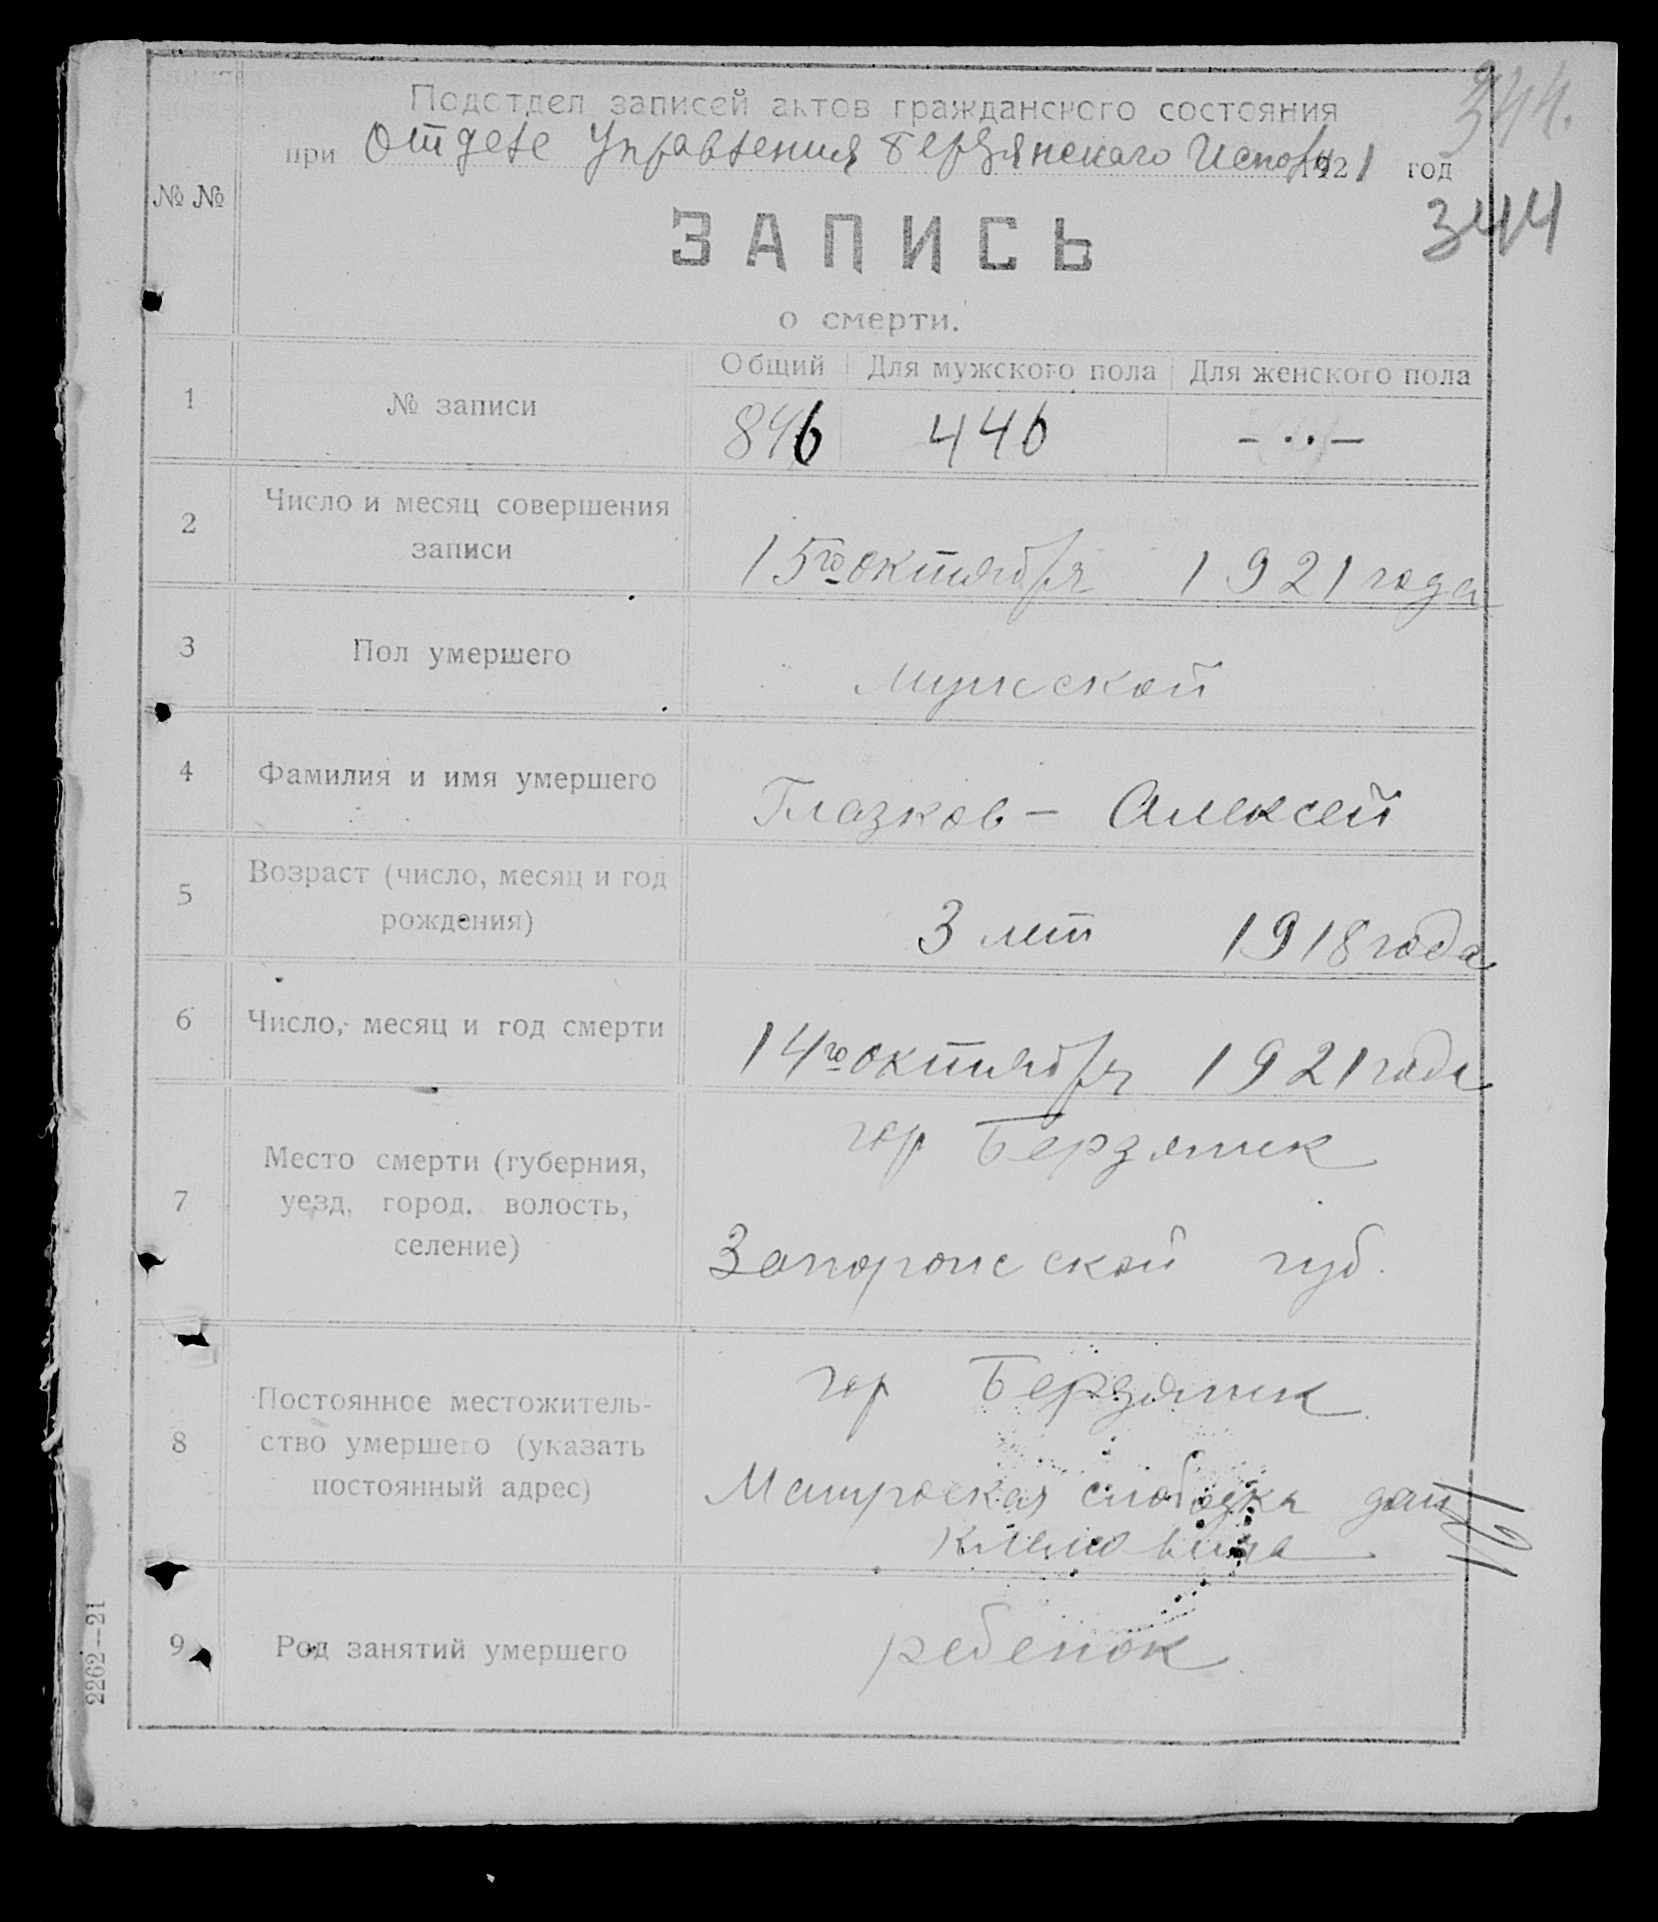 344.
Подотдел записей актов гражданского состояния
при Отделе Управления Бердянскаго Исполк 1921 год
344
№ №
ЗАПИСЬ
о смерти.
Общий Для мужского пола Для женского пола
1 № записи 846 446 - ·· -
2 Число и месяц совершения
записи 15го октября 1921 года
3 Пол умершего мужской
4 Фамилия и имя умершего Глазков - Алексей
5 Возраст (число, месяц и год
рождения) 3 лет 1918 года
6 Число, месяц и год смерти 14го октября 1921 года
гор Бердянск
7 Место смерти (губерния,
уезд, город, волость,
селение) Запорожской губ.
гор Бердянск
8 Постоянное местожитель-
ство умершего (указать
постоянный адрес) Матроская слободка дом
№
9 Род занятий умершего ребенок
2262—21